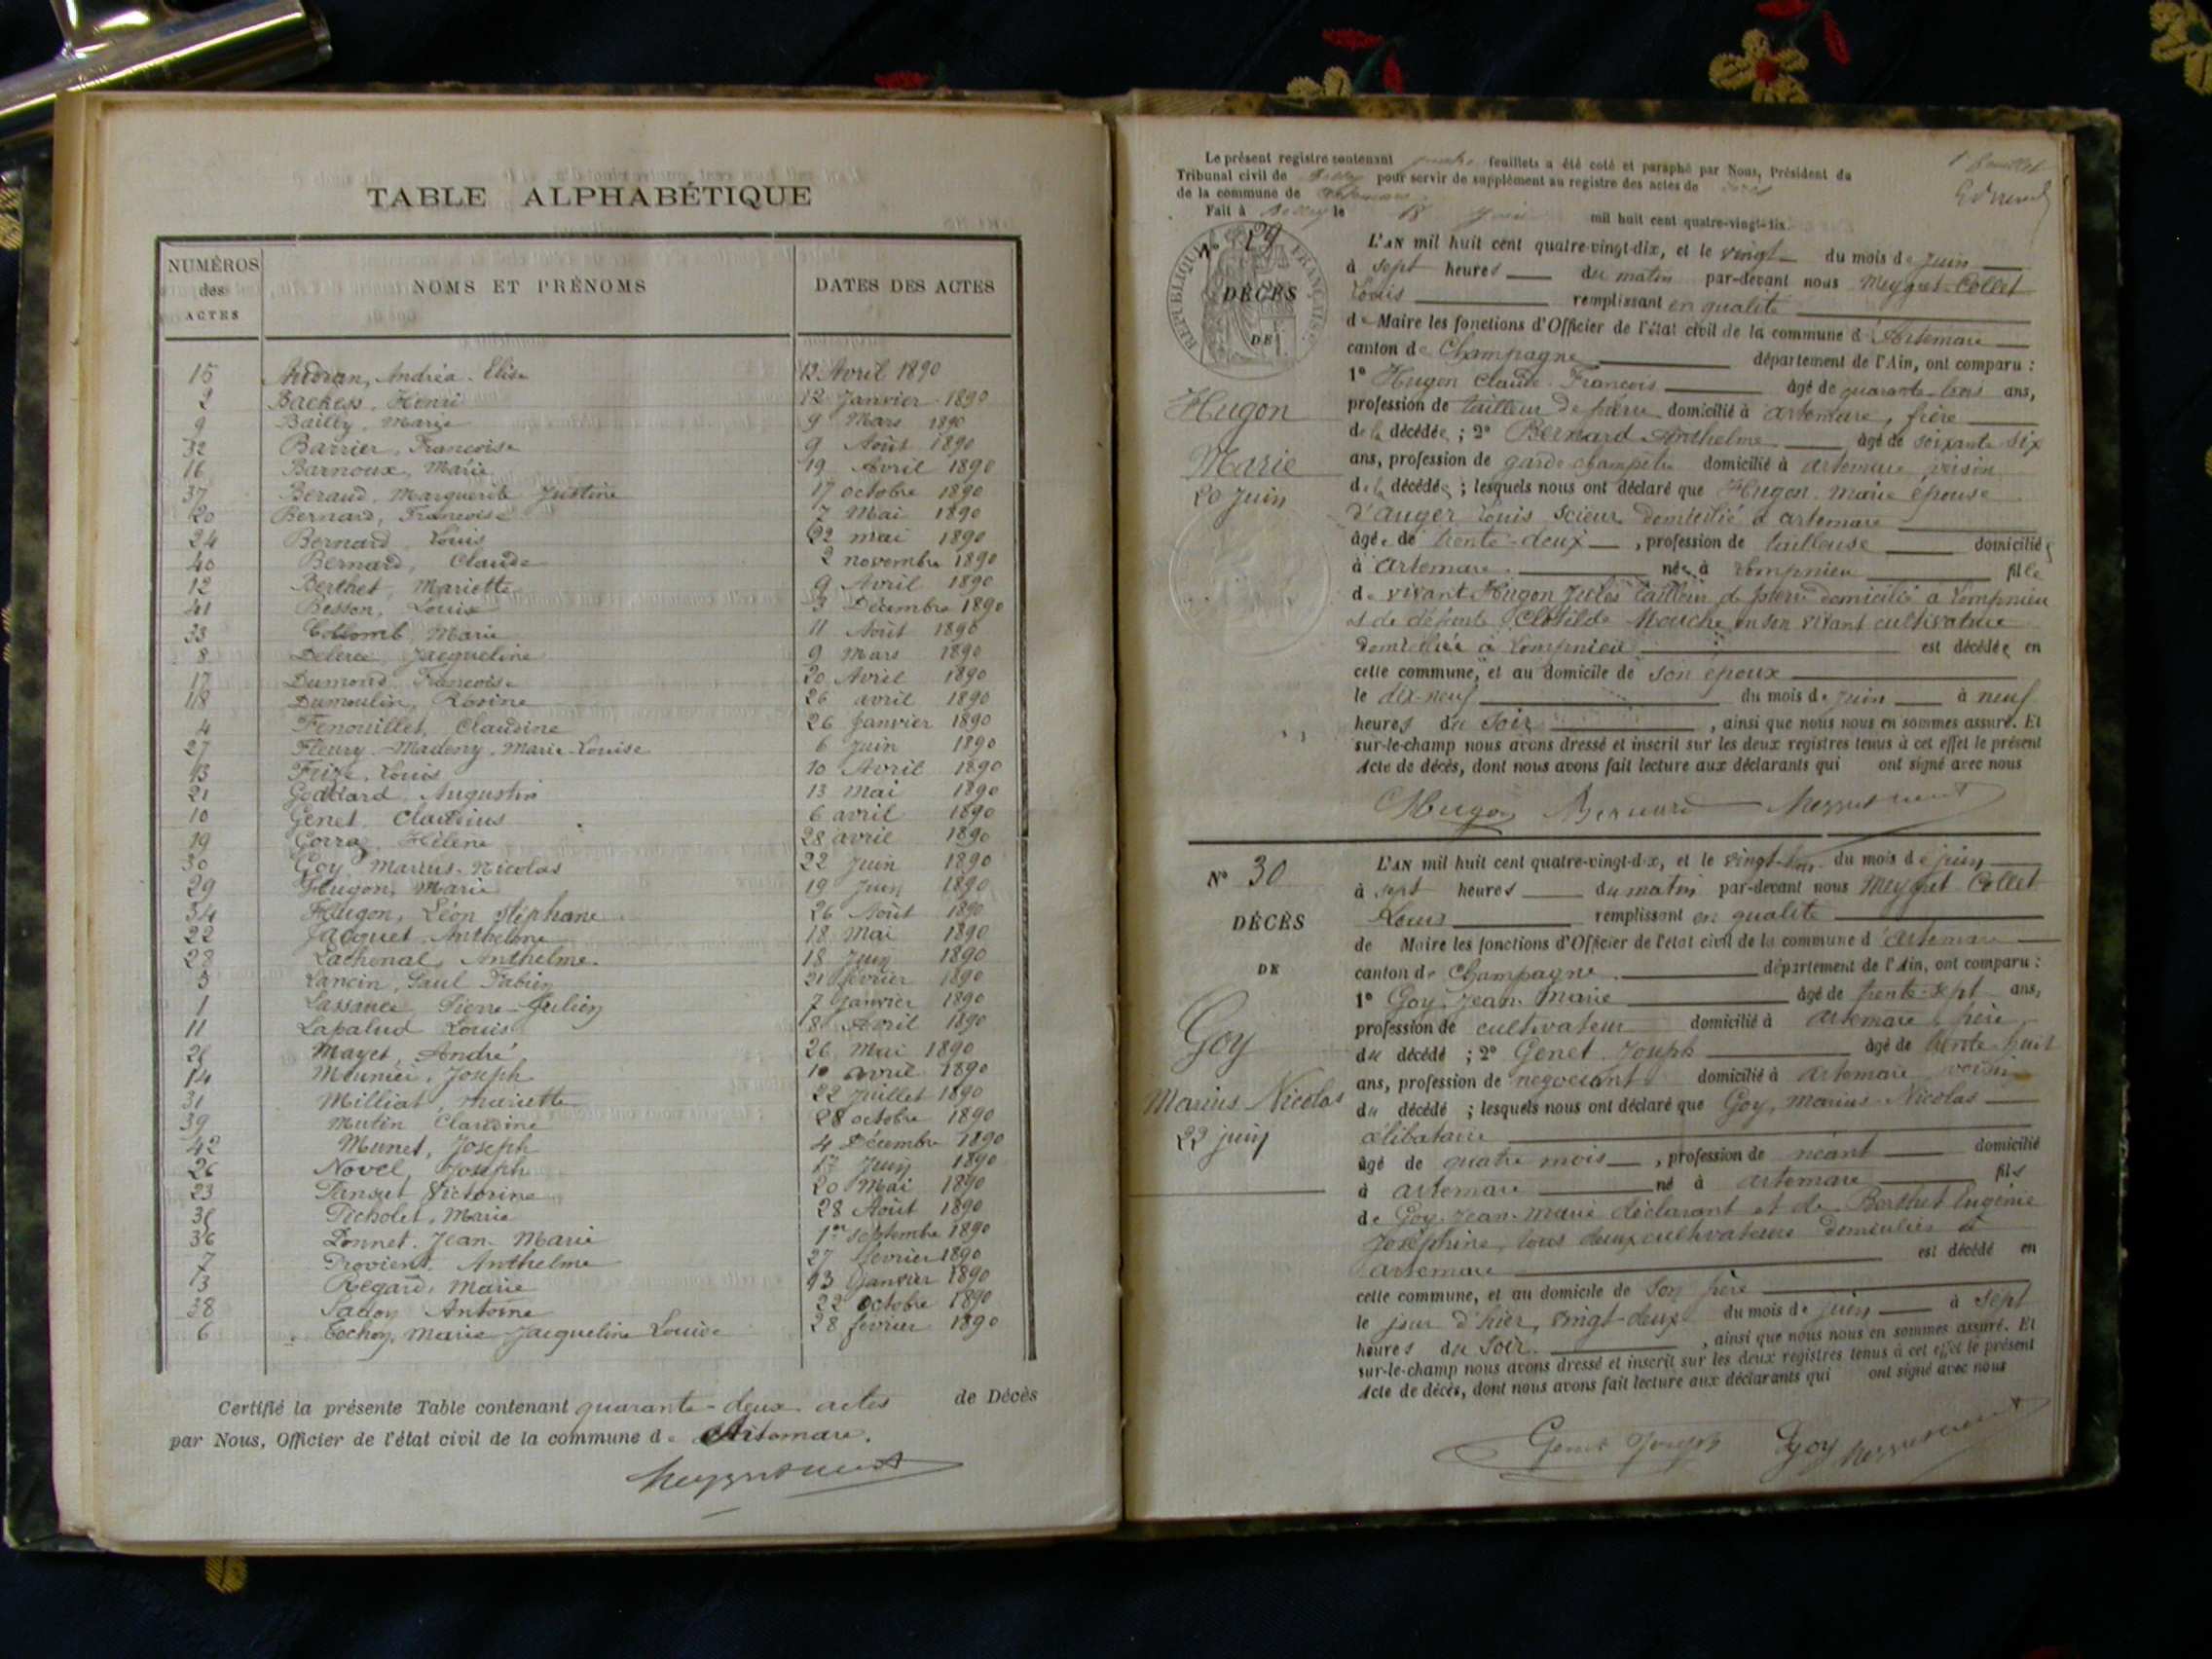 TABLE ALPHABÉTIQUE
NUMÉROS des ACTES NOMS ET PRÉNOMS DATES DES ACTES
15 Andréa-Elise Avril 1890
2 Henri 12 Janvier 1890
9 Bailly, Marie 9 Mars 1890
32 Barrier, Françoise 9 Août 1890
16 Barnoux, Marie 19 Avril 1890
37 Beraud, Marguerite Justine 17 octobre 1890
20 Bernard, Françoise 7 Mai 1890
24 Bernard, Louis 22 mai 1890
40 Bernard, Claude 2 novembre 1890
12 Berthet, Mariette 9 Avril 1890
41 Besson, Louis 3 Décembre 1890
33 Collomb, Marie 11 Août 1890
8 Jacqueline 9 Mars 1890
17 Dumond, Françoise 20 Avril 1890
18 Dumoulin, Rosine 26 avril 1890
4 Fenouillet, Claudine 26 Janvier 1890
27 Fleury-Madeny, Marie-Louise 6 Juin 1890
13 Louis 10 Avril 1890
21 Goddard, Augustin 13 Mai 1890
10 Genet, Claudius 6 avril 1890
19 Gorraz, Hélène 28 avril 1890
30 Goy, Marius-Nicolas 22 Juin 1890
29 Hugon, Marie 19 Juin 1890
34 Hugon, Léon Stéphane 26 Août 1890
22 Jacquet, Anthelme 18 Mai 1890
28 Lachenal, Anthelme 18 Juin 1890
5 Lancin, Paul Fabien 21 février 1890
1 Pierre-Julien 7 Janvier 1890
11 Lapalud Louis 8 Avril 1890
Mayet, André 26 Mai 1890
14 Meunier, Joseph avril 1890
31 Milliat, Mariette 22 Juillet 1890
39 Mutin Claudine 28 octobre 1890
42 Munet, Joseph 4 Décembre 1890
26 Novel, Joseph 17 Juin 1890
23 Victorine 20 Mai 1890
Picholet, Marie 28 Août 1890
36 Jean-Marie 1er septembre 1890
7 Anthelme 27 février 1890
Regard, Marie 13 Janvier 1890
38 Antoine 22 Octobre 1890
6 Tochon, Marie-Jacqueline Louise 28 février 1890
Certifié la présente Table contenant quarante-deux actes de Décès
par Nous, Officier de l'état civil de la commune d' Artemare.
Le présent registre contenant feuillets a été coté et paraphé par Nous, Président du
Tribunal civil de Belley pour servir de supplément au registre des actes de décès
de la commune de Artemare
Fait à Belley le 18 Juin mil huit cent quatre-vingt-dix.
1er feuillet
RÉPUBLIQUE FRANÇAISE
N° 29
DÉCÈS
DE
Hugon
Marie
20 Juin
L'AN mil huit cent quatre-vingt-dix, et le vingt du mois de Juin
à sept heures du matin par-devant nous Meygret-Collet
Louis remplissant en qualité
de Maire les fonctions d'Officier de l'état civil de la commune d'Artemare
canton de Champagne département de l'Ain, ont comparu :
1° Hugon Claude-François âgé de quarante-trois ans,
profession de tailleur de pierre domicilié à Artemare, frère
de la décédée ; 2° Bernard Anthelme âgé de soixante six
ans, profession de garde champêtre domicilié à Artemare voisin
de la décédée ; lesquels nous ont déclaré que Hugon Marie épouse
d'Auger Louis scieur domicilié à Artemare
âgée de trente-deux , profession de tailleuse domiciliée
à Artemare née à Lompnieu fille
de vivant Hugon Jules tailleur de pierre domicilié à Lompnieu
et de défunte Clotilde Mouche en son vivant cultivatrice
domiciliée à Lompnieu est décédée en
cette commune, et au domicile de son époux
le dix-neuf du mois de Juin à neuf
heures du soir , ainsi que nous nous en sommes assuré. Et
sur-le-champ nous avons dressé et inscrit sur les deux registres tenus à cet effet le présent
Acte de décès, dont nous avons fait lecture aux déclarants qui ont signé avec nous
Hugon Bernard
N° 30
DÉCÈS
DE
Goy
Marius Nicolas
juin
L'AN mil huit cent quatre-vingt-dix, et le vingt-trois du mois de juin
à sept heures du matin par-devant nous Meygret Collet
Louis remplissant en qualité
de Maire les fonctions d'Officier de l'état civil de la commune d'Artemare
canton de Champagne département de l'Ain, ont comparu :
1° Goy, Jean-Marie âgé de trente-sept ans,
profession de cultivateur domicilié à Artemare, père
du décédé ; 2° Genet Joseph âgé de trente-huit
ans, profession de négociant domicilié à Artemare voisin
du décédé ; lesquels nous ont déclaré que Goy, Marius-Nicolas
célibataire
âgé de quatre mois , profession de néant domicilié
à Artemare né à Artemare fils
de Goy, Jean-Marie déclarant et de Berthet Eugénie
Joséphine, tous deux cultivateurs domiciliés à
Artemare est décédé en
cette commune, et au domicile de son père
le jour d'hier, vingt-deux du mois de juin à sept
heures du soir , ainsi que nous nous en sommes assuré. Et
sur-le-champ nous avons dressé et inscrit sur les deux registres tenus à cet effet le présent
Acte de décès, dont nous avons fait lecture aux déclarants qui ont signé avec nous
Genet Joseph Goy